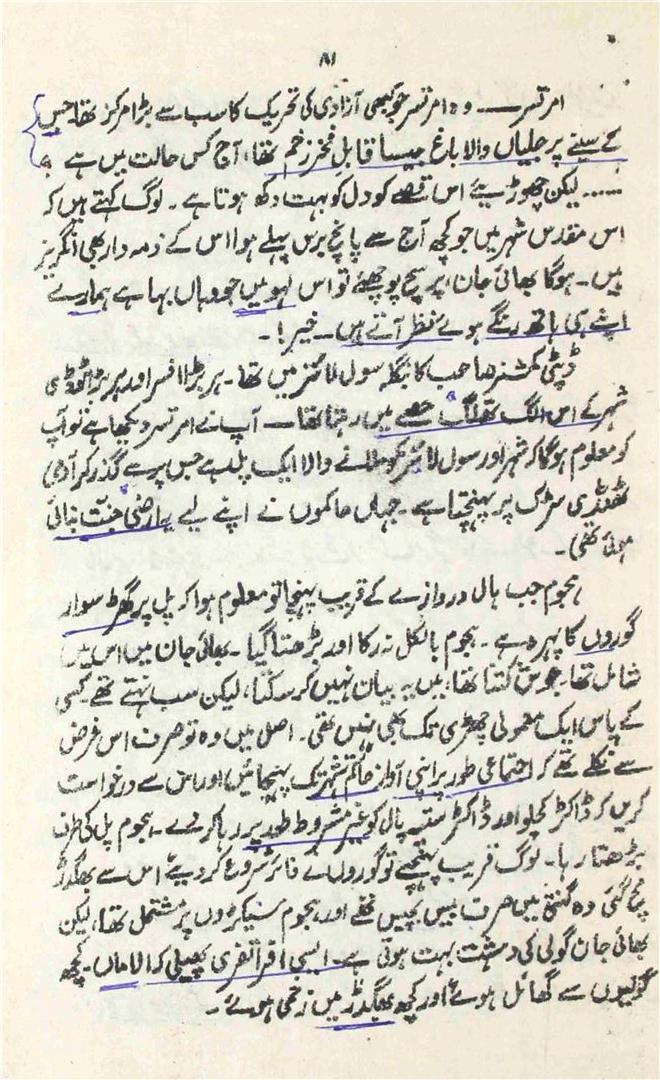 ۸۱
امرتسر — وہ امرتسر جو کبھی آزادی کی تحریک کا سب سے بڑا مرکز تھا جس
کے سینے پر جلیاں والا باغ جیسا قابلِ فخر زخم تھا، آج کس حالت میں ہے ؟
...... لیکن چھوڑیئے اس قصے کو دل کو بہت دکھ ہوتا ہے۔ لوگ کہتے ہیں کہ
اس مقدس شہر میں جو کچھ آج سے پانچ برس پہلے ہوا اس کے ذمہ دار بھی انگریز
ہیں۔ ہوگا بھائی جان، پر سچ پوچھئے تو اس لہو میں جو وہاں بہا ہے ہمارے
اپنے ہی ہاتھ رنگے ہوئے نظر آتے ہیں۔ خیر!۔
ڈپٹی کمشنر صاحب کا بنگلہ سول لائنز میں تھا۔ ہر بڑا افسر اور ہر بڑا ٹوڈی
شہر کے اس الگ تھلگ حصے میں رہتا تھا — آپ نے امرتسر دیکھا ہے تو آپ
کو معلوم ہوگا کہ شہر اور سول لائنز کو ملانے والا ایک پل ہے جس پر سے گذر کر آدمی
ٹھنڈی سڑک پر پہنچتا ہے۔ جہاں حاکموں نے اپنے لیے یہ ارضی جنت بنائی
ہوئی تھی۔
ہجوم جب ہال دروازے کے قریب پہنچا تو معلوم ہوا کہ پل پر گھڑ سوار
گوروں کا پہرہ ہے۔ ہجوم بالکل نہ رکا اور بڑھتا گیا۔ بھائی جان میں اس میں
شامل تھا۔ جوش کتنا تھا، میں یہ بیان نہیں کر سکتا، لیکن سب نہتے تھے۔ کسی
کے پاس ایک معمولی چھڑی تک بھی نہیں تھی۔ اصل میں وہ تو صرف اس غرض
سے نکلے تھے کہ اجتماعی طور پر اپنی آواز حاکم شہر تک پہنچائیں اور اس سے درخواست
کریں کہ ڈاکٹر کچلو اور ڈاکٹر ستیہ پال کو غیر مشروط طور پر رہا کر دے۔ ہجوم پل کی طرف
بڑھتا رہا۔ لوگ قریب پہنچے تو گوروں نے فائر شروع کر دیئے اس سے بھگدڑ
مچ گئی وہ گنتی میں صرف بیس پچیس تھے اور ہجوم سینکڑوں پر مشتمل تھا، لیکن
بھائی جان گولی کی دہشت بہت ہوتی ہے۔ ایسی افراتفری پھیلی کہ الاماں۔ کچھ
گولیوں سے گھائل ہوئے اور کچھ بھگدڑ میں زخمی ہوئے۔